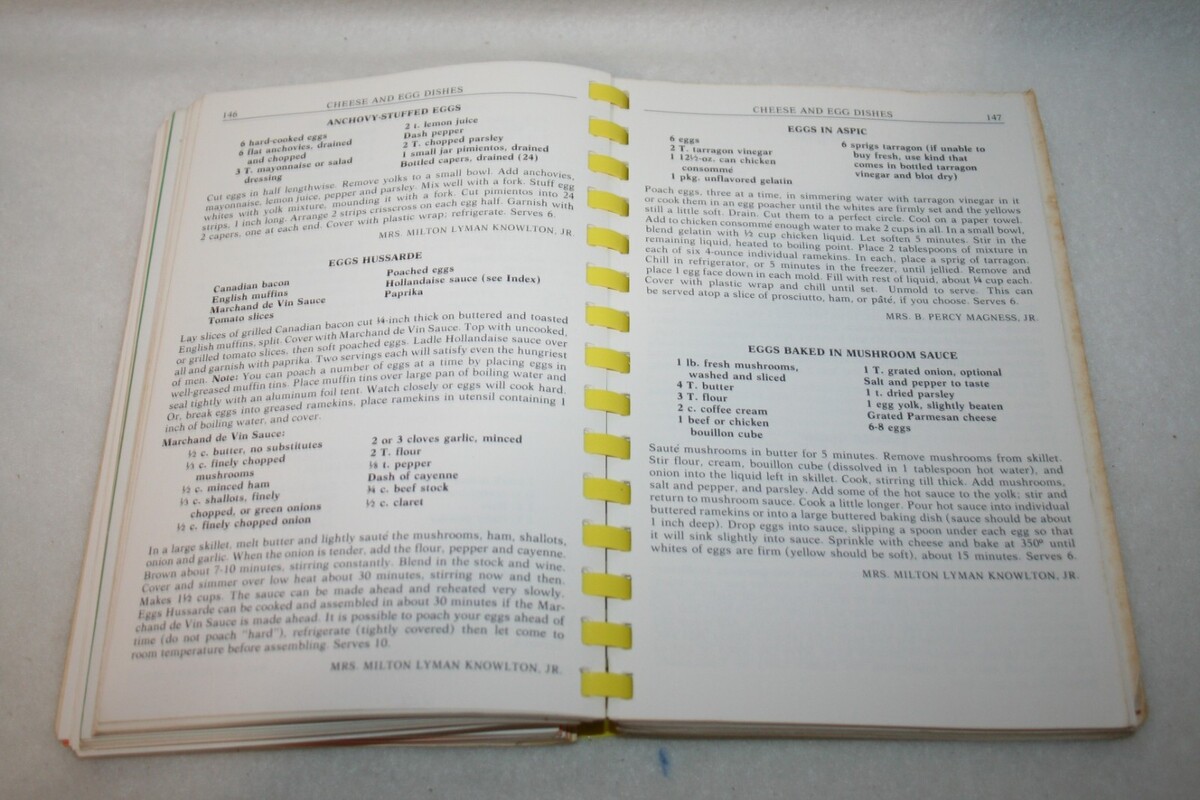 146
CHEESE AND EGG DISHES
ANCHOVY-STUFFED EGGS
6 hard-cooked eggs
6 flat anchovies, drained
and chopped
3 T. mayonnaise or salad
dressing
2 t. lemon juice
Dash pepper
2 T. chopped parsley
1 small jar pimientos, drained
Bottled capers, drained (24)
Cut eggs in half lengthwise. Remove yolks to a small bowl. Add anchovies,
mayonnaise, lemon juice, pepper and parsley. Mix well with a fork. Stuff egg
whites with yolk mixture, mounding it with a fork. Cut pimientos into 24
strips, 1 inch long. Arrange 2 strips crisscross on each egg half. Garnish with
2 capers, one at each end. Cover with plastic wrap; refrigerate. Serves 6.
MRS. MILTON LYMAN KNOWLTON, JR.
EGGS HUSSARDE
Canadian bacon
English muffins
Marchand de Vin Sauce
Tomato slices
Poached eggs
Hollandaise sauce (see Index)
Paprika
Lay slices of grilled Canadian bacon cut ¼-inch thick on buttered and toasted
English muffins, split. Cover with Marchand de Vin Sauce. Top with uncooked,
or grilled tomato slices, then soft poached eggs. Ladle Hollandaise sauce over
all and garnish with paprika. Two servings each will satisfy even the hungriest
of men. Note: You can poach a number of eggs at a time by placing eggs in
well-greased muffin tins. Place muffin tins over large pan of boiling water and
seal tightly with an aluminum foil tent. Watch closely or eggs will cook hard.
Or, break eggs into greased ramekins, place ramekins in utensil containing 1
inch of boiling water, and cover.
Marchand de Vin Sauce:
½ c. butter, no substitutes
⅓ c. finely chopped
mushrooms
½ c. minced ham
⅓ c. shallots, finely
chopped, or green onions
½ c. finely chopped onion
2 or 3 cloves garlic, minced
2 T. flour
⅛ t. pepper
Dash of cayenne
¾ c. beef stock
½ c. claret
In a large skillet, melt butter and lightly sauté the mushrooms, ham, shallots,
onion and garlic. When the onion is tender, add the flour, pepper and cayenne.
Brown about 7-10 minutes, stirring constantly. Blend in the stock and wine.
Cover and simmer over low heat about 30 minutes, stirring now and then.
Makes 1½ cups. The sauce can be made ahead and reheated very slowly.
Eggs Hussarde can be cooked and assembled in about 30 minutes if the Mar-
chand de Vin Sauce is made ahead. It is possible to poach your eggs ahead of
time (do not poach "hard"), refrigerate (tightly covered) then let come to
room temperature before assembling. Serves 10.
MRS. MILTON LYMAN KNOWLTON, JR.
CHEESE AND EGG DISHES
147
EGGS IN ASPIC
6 eggs
2 T. tarragon vinegar
1 12½-oz. can chicken
consommé
1 pkg. unflavored gelatin
6 sprigs tarragon (if unable to
buy fresh, use kind that
comes in bottled tarragon
vinegar and blot dry)
Poach eggs, three at a time, in simmering water with tarragon vinegar in it
or cook them in an egg poacher until the whites are firmly set and the yellows
still a little soft. Drain. Cut them to a perfect circle. Cool on a paper towel.
Add to chicken consommé enough water to make 2 cups in all. In a small bowl,
blend gelatin with ½ cup chicken liquid. Let soften 5 minutes. Stir in the
remaining liquid, heated to boiling point. Place 2 tablespoons of mixture in
each of six 4-ounce individual ramekins. In each, place a sprig of tarragon.
Chill in refrigerator, or 5 minutes in the freezer, until jellied. Remove and
place 1 egg face down in each mold. Fill with rest of liquid, about ¼ cup each.
Cover with plastic wrap and chill until set. Unmold to serve. This can
be served atop a slice of prosciutto, ham, or pâté, if you choose. Serves 6.
MRS. B. PERCY MAGNESS, JR.
EGGS BAKED IN MUSHROOM SAUCE
1 lb. fresh mushrooms,
washed and sliced
4 T. butter
3 T. flour
2 c. coffee cream
1 beef or chicken
bouillon cube
1 T. grated onion, optional
Salt and pepper to taste
1 t. dried parsley
1 egg yolk, slightly beaten
Grated Parmesan cheese
6-8 eggs
Sauté mushrooms in butter for 5 minutes. Remove mushrooms from skillet.
Stir flour, cream, bouillon cube (dissolved in 1 tablespoon hot water), and
onion into the liquid left in skillet. Cook, stirring till thick. Add mushrooms,
salt and pepper, and parsley. Add some of the hot sauce to the yolk; stir and
return to mushroom sauce. Cook a little longer. Pour hot sauce into individual
buttered ramekins or into a large buttered baking dish (sauce should be about
1 inch deep). Drop eggs into sauce, slipping a spoon under each egg so that
it will sink slightly into sauce. Sprinkle with cheese and bake at 350º until
whites of eggs are firm (yellow should be soft), about 15 minutes. Serves 6.
MRS. MILTON LYMAN KNOWLTON, JR.